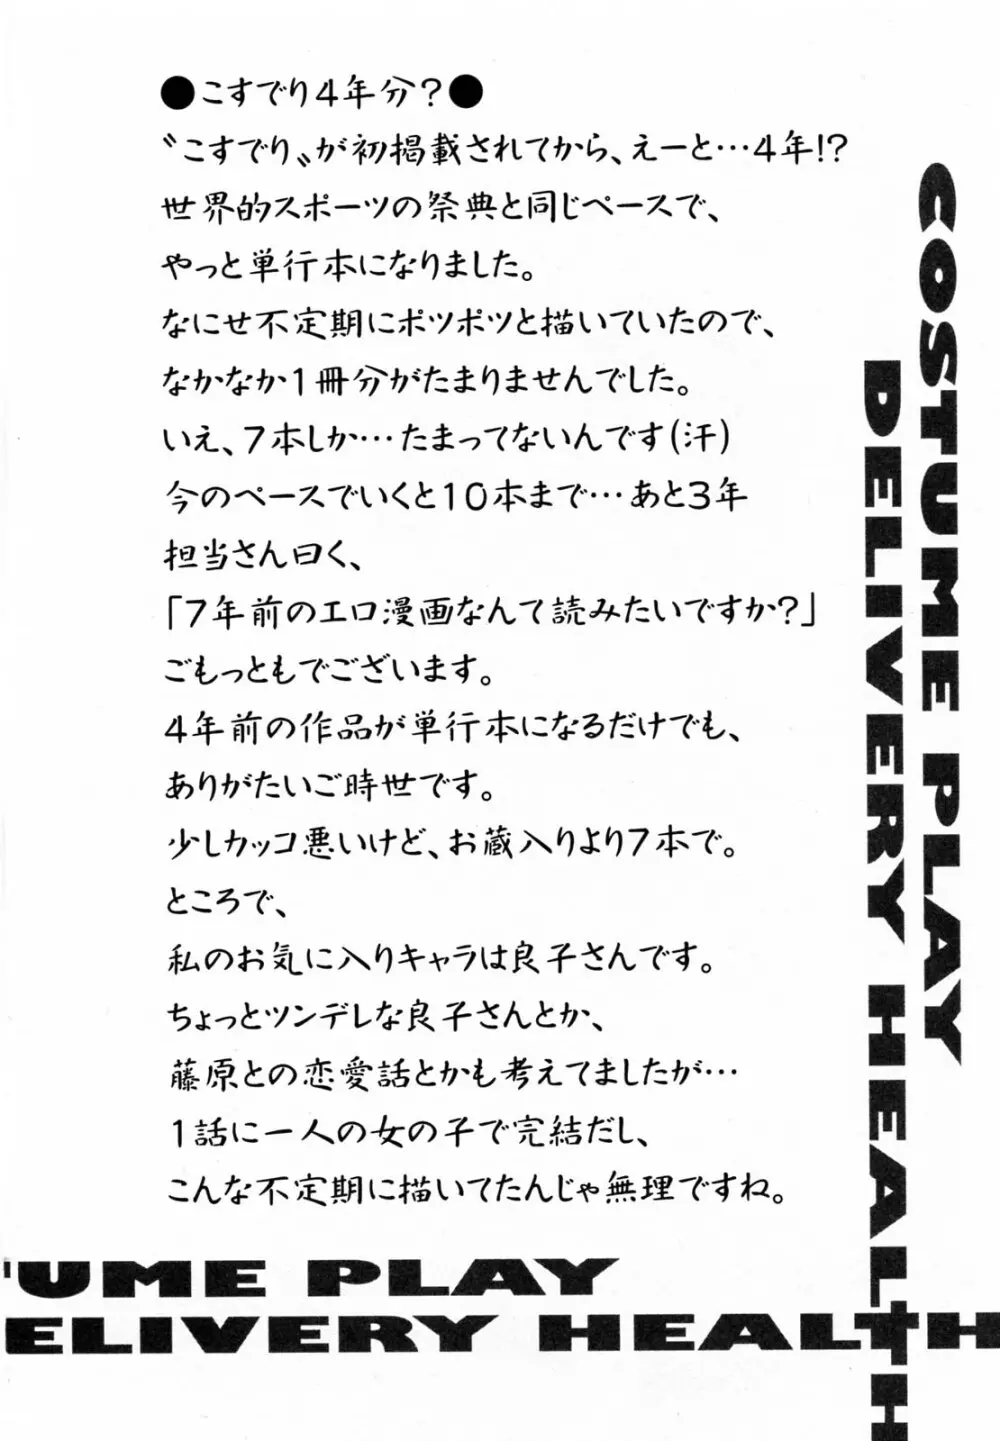 ●こすでり4年分?●
〝こすでり〟が初掲載されてから、えーと…4年!?
世界的スポーツの祭典と同じペースで、
やっと単行本になりました。
なにせ不定期にポツポツと描いていたので、
なかなか1冊分がたまりませんでした。
いえ、7本しか…たまってないんです(汗)
今のペースでいくと10本まで…あと3年
担当さん曰く、
「7年前のエロ漫画なんて読みたいですか?」
ごもっともでございます。
4年前の作品が単行本になるだけでも、
ありがたいご時世です。
少しカッコ悪いけど、お蔵入りより7本で。
ところで、
私のお気に入りキャラは良子さんです。
ちょっとツンデレな良子さんとか、
藤原との恋愛話とかも考えてましたが…
1話に一人の女の子で完結だし、
こんな不定期に描いてたんじゃ無理ですね。
COSTUME PLAY
DELIVERY HEALTH
TUME PLAY
ELIVERY HEALTH